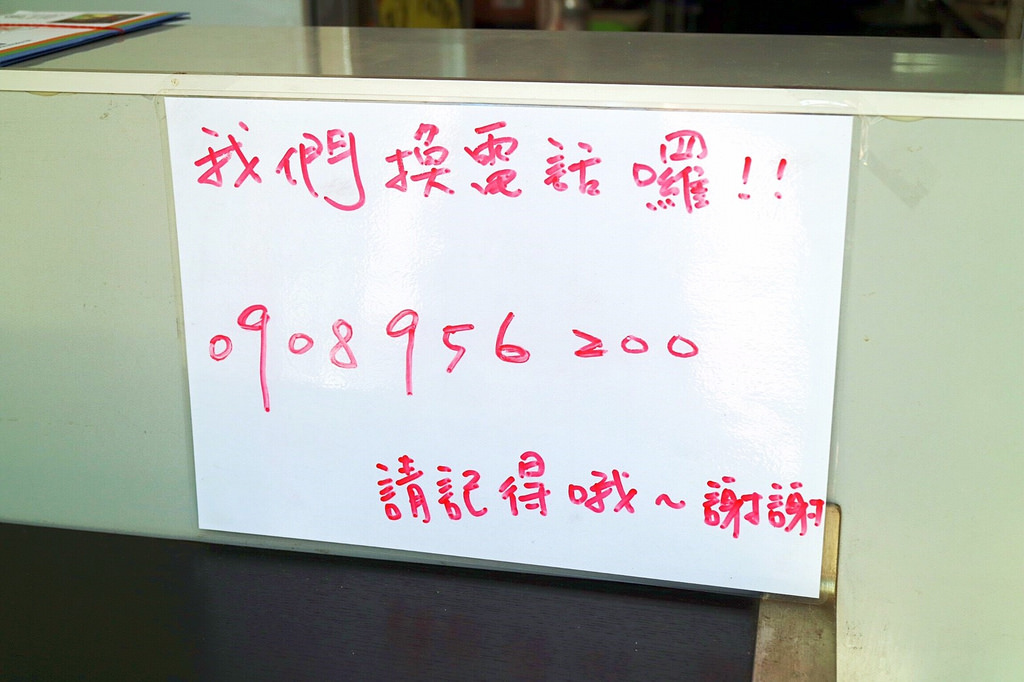 我們換電話囉!!
0908 956 200
請記得哦~謝謝